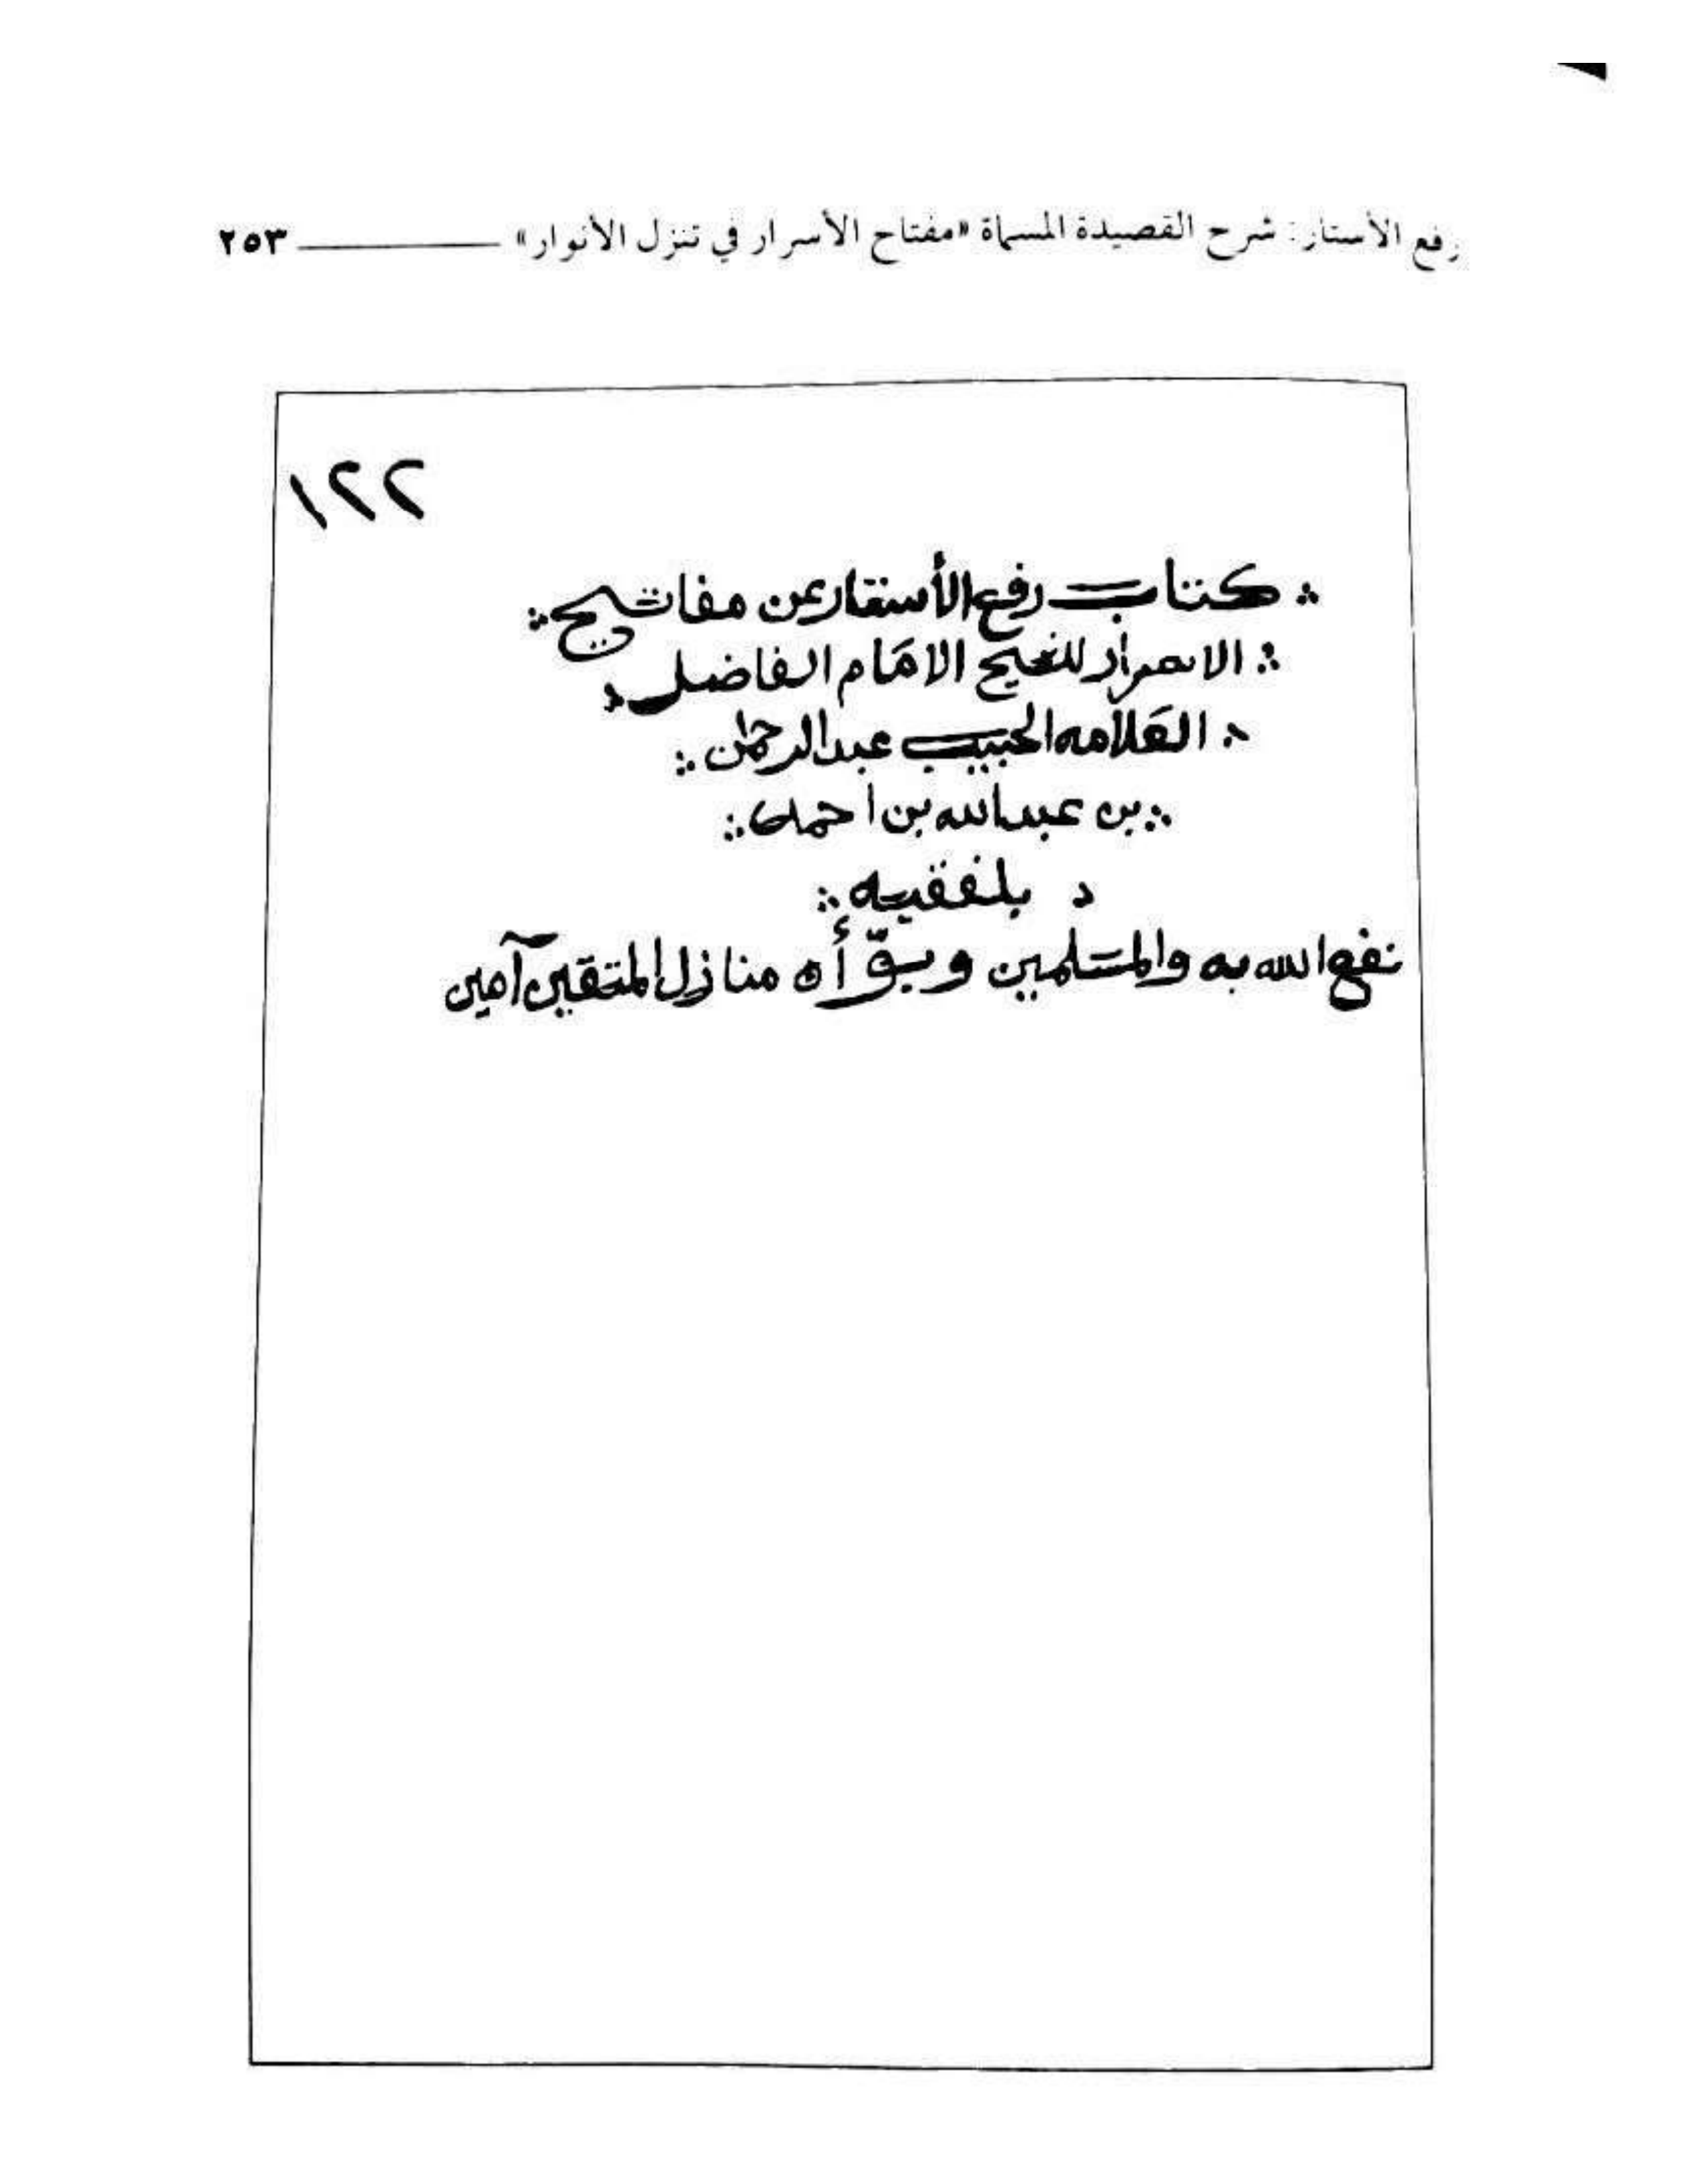 رفع الأستار: شرح القصيدة المسماة «مفتاح الأسرار في تنزل الأنوار» ٢٥٣
١٢٢
كتاب رفع الأستار عن مفاتيح
الاسرار للشيخ الامام الفاضل
العلامه الحبيب عبدالرحمن
بن عبدالله بن احمد
بلفقيه
نفع الله به والمسلمين وبوّأه منازل المتقين آمين